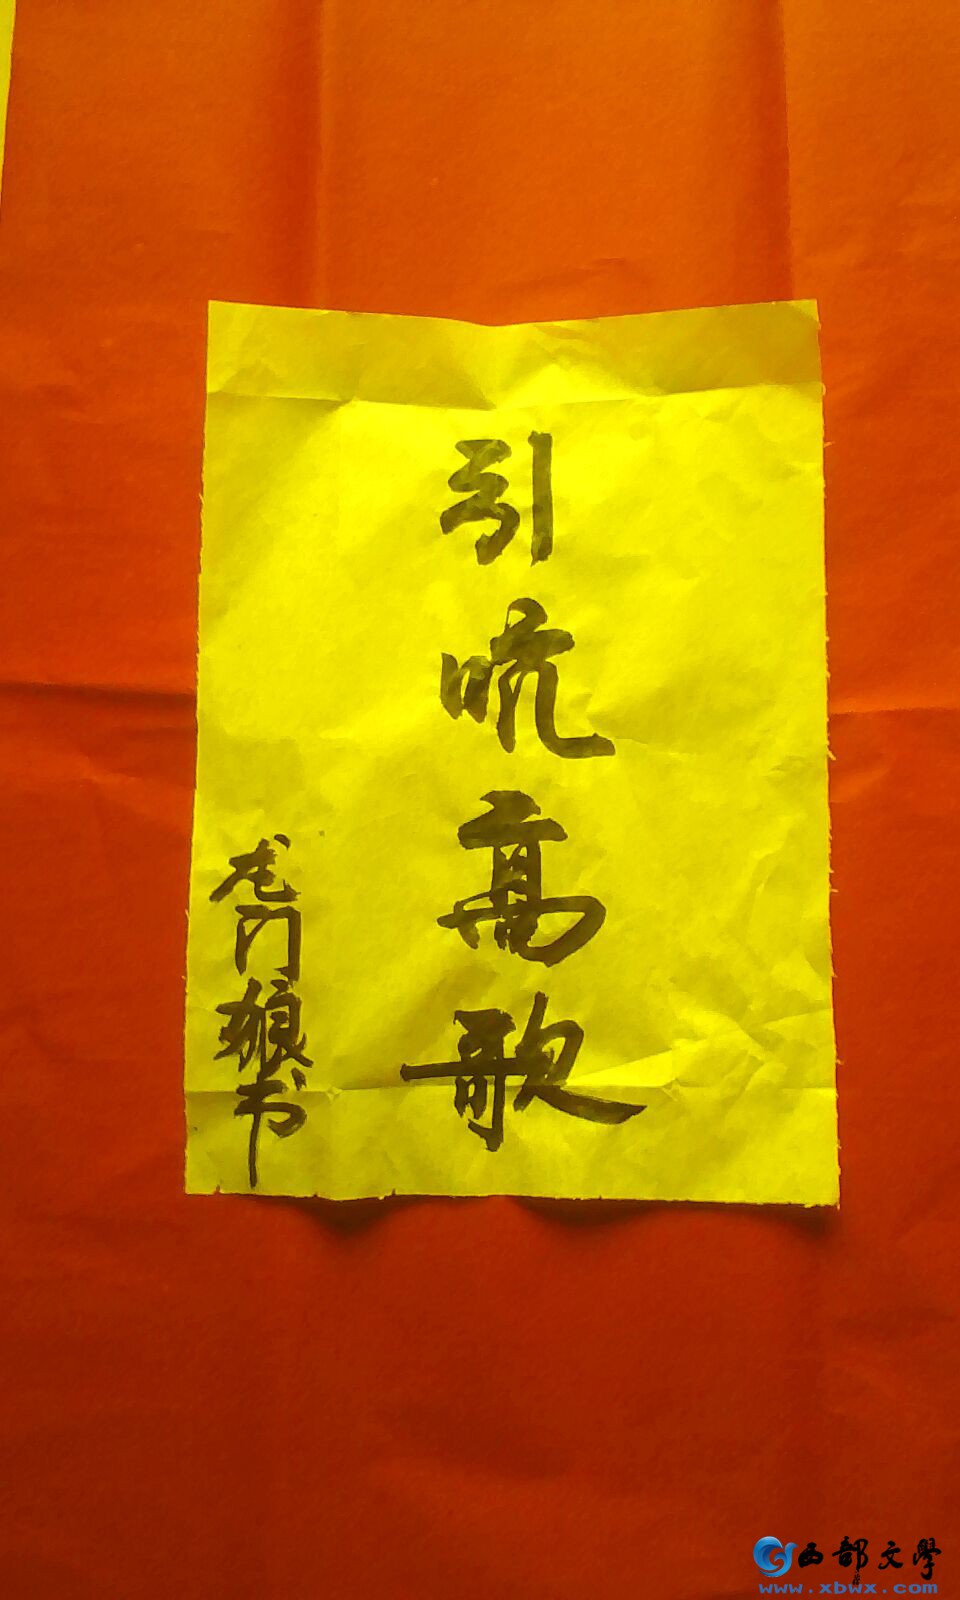 引吭高歌
龙门狼书
西部文學
www.xbwx.com